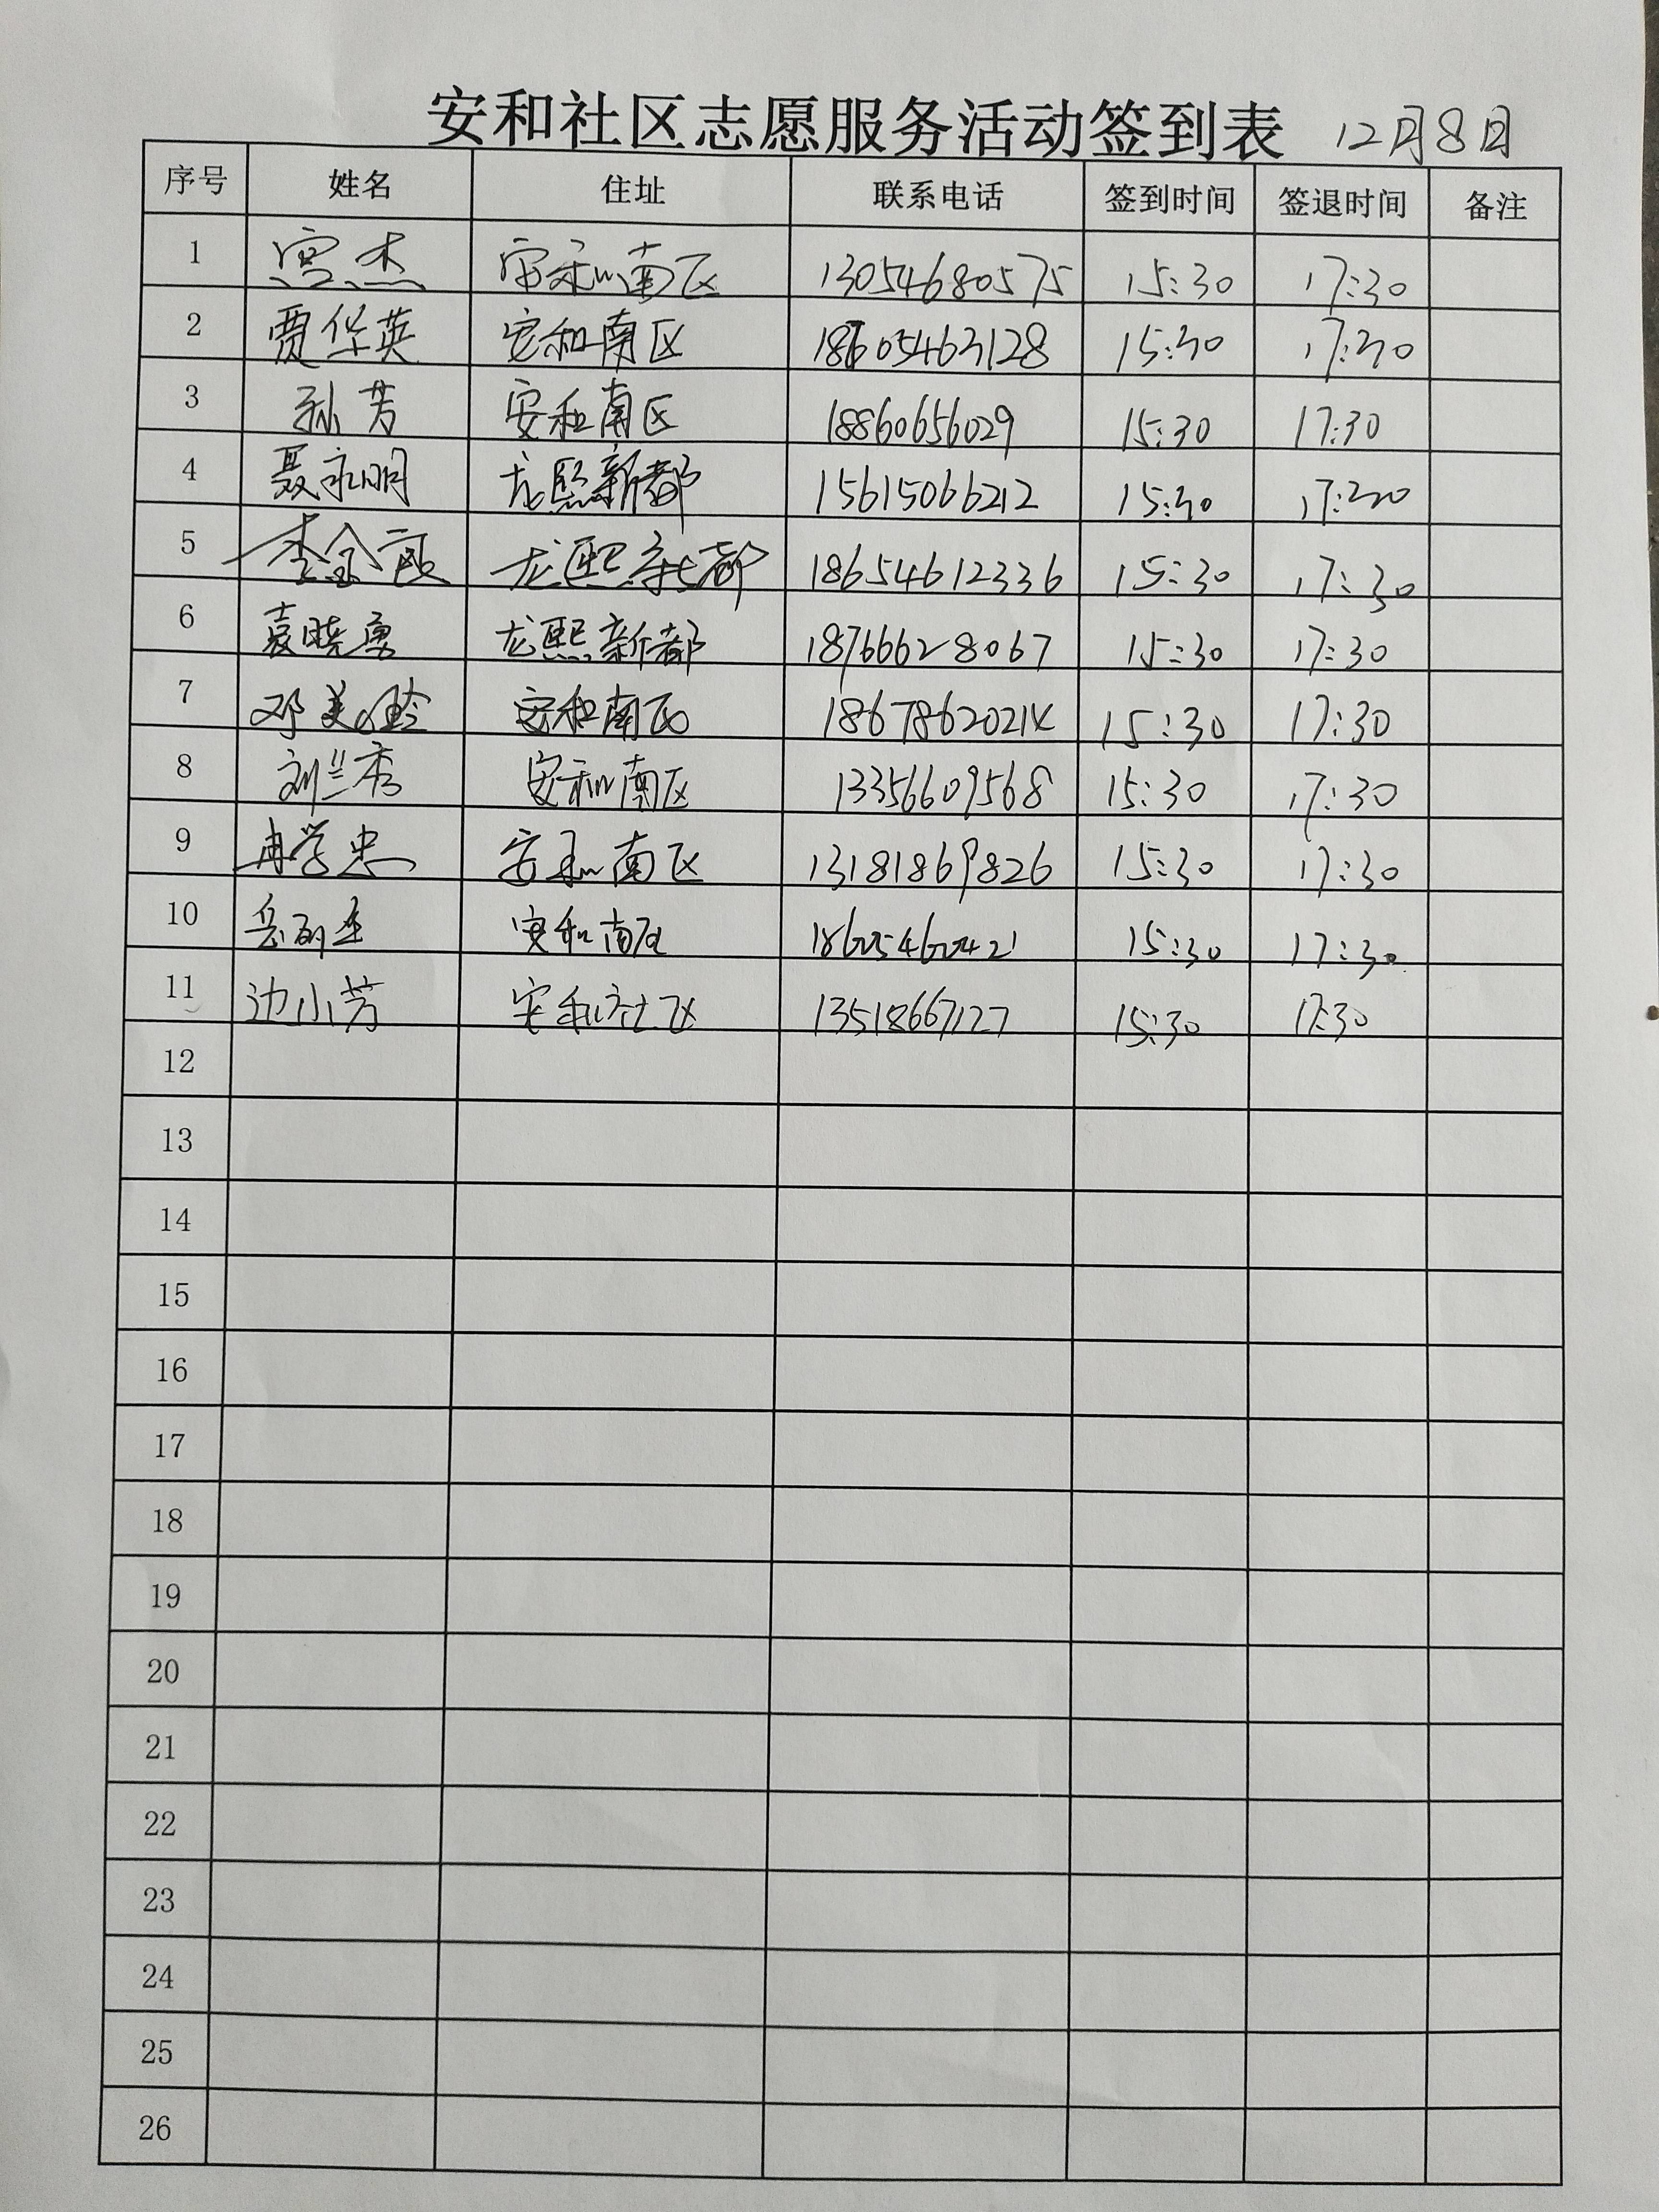 安和社区志愿服务活动签到表 12月8日
序号 姓名 住址 联系电话 签到时间 签退时间 备注
1 宫杰 安和南区 13054680575 15:30 17:30
2 贾华英 安和南区 18605463128 15:30 17:30
3 孙芳 安和南区 18860656029 15:30 17:30
4 聂永明 龙熙新都 15615066212 15:30 17:30
5 李金 龙熙新都 18654612336 15:30 17:30
6 袁晓勇 龙熙新都 18766628067 15:30 17:30
7 邓美玲 安和南区 18678620214 15:30 17:30
8 刘兰秀 安和南区 13356609568 15:30 17:30
9 冉学忠 安和南区 13181869826 15:30 17:30
10 安和南区 15:30 17:30
11 边小芳 安和社区 13518667127 15:30 17:30
12
13
14
15
16
17
18
19
20
21
22
23
24
25
26